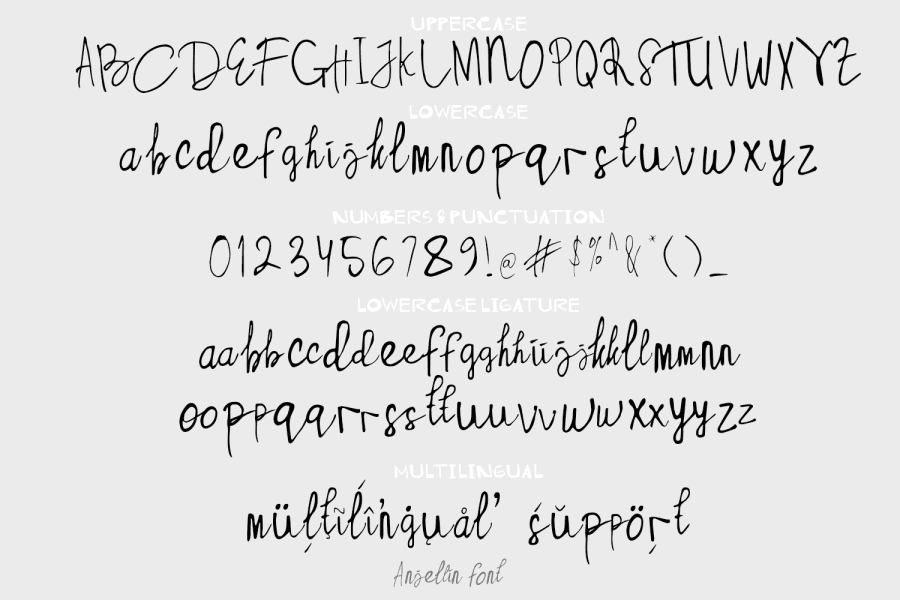 UPPERCASE
ABCDEFGHIJKLMNOPQRSTUVWXYZ
LOWERCASE
abcdefghijklmnopqrstuvwxyz
NUMBERS & PUNCTUATION
0123456789!@#$%^&*()_
LOWERCASE LIGATURE
aabbccddeeffgghhiijjkkllmmnn
ooppqqrrssttuuvvwwxxyyzz
MULTILINGUAL
müļţĩĺîňġųåľ śŭppöŗt
Angellin font